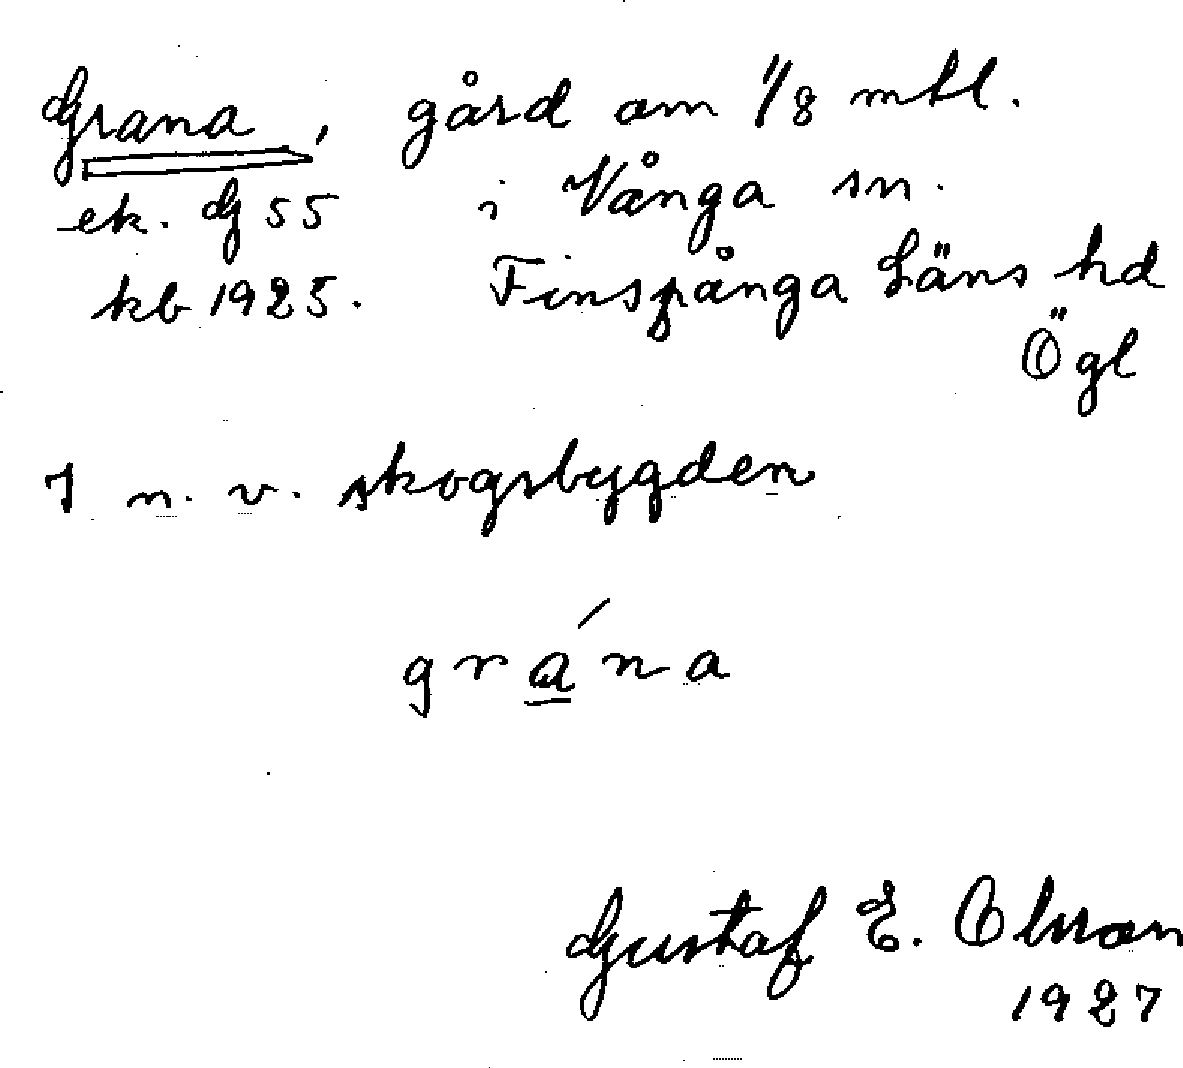 Grana, gård om 1/8 mtl.
ek. G 55 i Vånga sn.
kb 1925. Finspånga Läns hd
Ögl
I n. v. skogsbygden
grána
Gustaf E. Olsson
1927